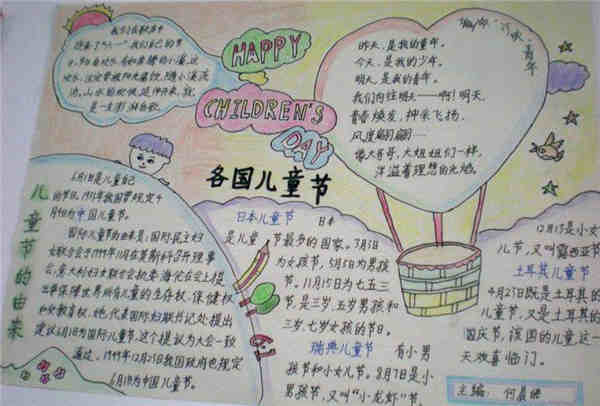 我们在歌声中
迎来了"六一"我们自己的节
HAPPY
CHILDREN'S
DAY
童年·少年·青年
昨天，是我的童年。
今天，是我的少年。
明天，是我的青年。
我们向往明天——啊！明天，
青春焕发，神采飞扬，
风度翩翩……
像大哥哥，大姐姐们一样，
洋溢着理想的光焰。
各国儿童节
儿童节的由来
6月1日是儿童自己
的节日，1931年我国曾规定4
月4日为中国儿童节。
国际儿童节的由来是：国际民主妇
女联合会于1949年11月在莫斯科召开理事
会，意大利妇女联合会执委
提出保障世界所有儿童的生存权、保健权
和受教育权，她代表国际妇联书记处提出
建议6月1日为国际儿童节，这个提议为大会一致
通过。1949年12月23我国政府也规定
6月1日为中国儿童节。
日本儿童节 日本
是儿童节最多的国家。3月3日
为女孩节，5月5日为男孩
节，11月15日为七五三
节，是三岁、五岁男孩和
三岁、七岁女孩的节日。
瑞典儿童节 有小男
孩节和小女儿节。8月7日是小
男孩节，又叫"小龙虾"节。
12月13是小女
儿节，又叫露西亚节
土耳其儿童节
4月23既是土耳其的
儿童节，又是土耳其的
国庆节，该国的儿童这一
天欢喜临门。
六一
主编：何晨